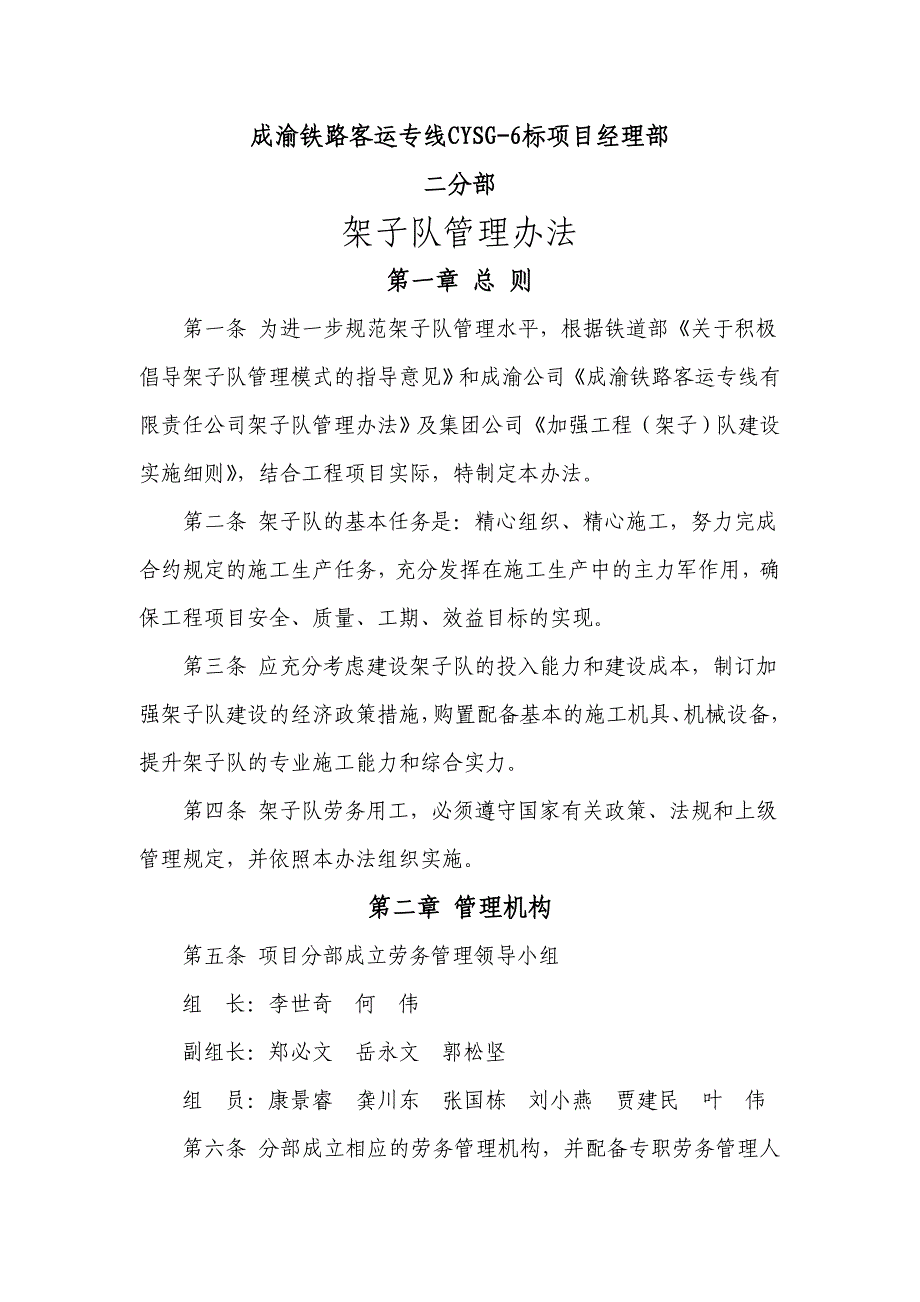 成渝铁路客运专线CYSG-6标项目经理部
二分部
架子队管理办法
第一章 总 则
第一条 为进一步规范架子队管理水平，根据铁道部《关于积极
倡导架子队管理模式的指导意见》和成渝公司《成渝铁路客运专线有
限责任公司架子队管理办法》及集团公司《加强工程（架子）队建设
实施细则》，结合工程项目实际，特制定本办法。
第二条 架子队的基本任务是：精心组织、精心施工，努力完成
合约规定的施工生产任务，充分发挥在施工生产中的主力军作用，确
保工程项目安全、质量、工期、效益目标的实现。
第三条 应充分考虑建设架子队的投入能力和建设成本，制订加
强架子队建设的经济政策措施，购置配备基本的施工机具、机械设备，
提升架子队的专业施工能力和综合实力。
第四条 架子队劳务用工，必须遵守国家有关政策、法规和上级
管理规定，并依照本办法组织实施。
第二章 管理机构
第五条 项目分部成立劳务管理领导小组
组　长：李世奇　何　伟
副组长：郑必文　岳永文　郭松坚
组　员：康景睿　龚川东　张国栋　刘小燕　贾建民　叶　伟
第六条 分部成立相应的劳务管理机构，并配备专职劳务管理人